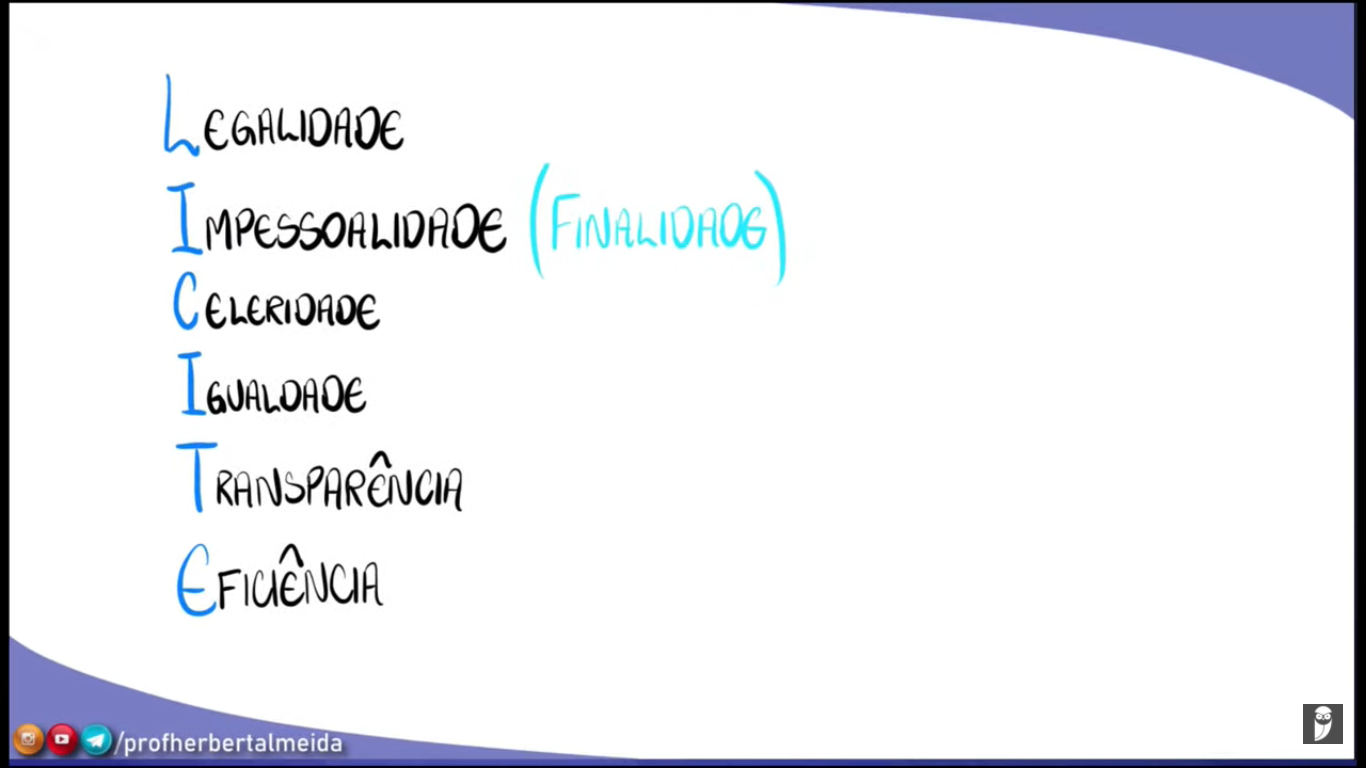 LEGALIDADE
IMPESSOALIDADE (FINALIDADE)
CELERIDADE
IGUALDADE
TRANSPARÊNCIA
EFICIÊNCIA
/profherbertalmeida